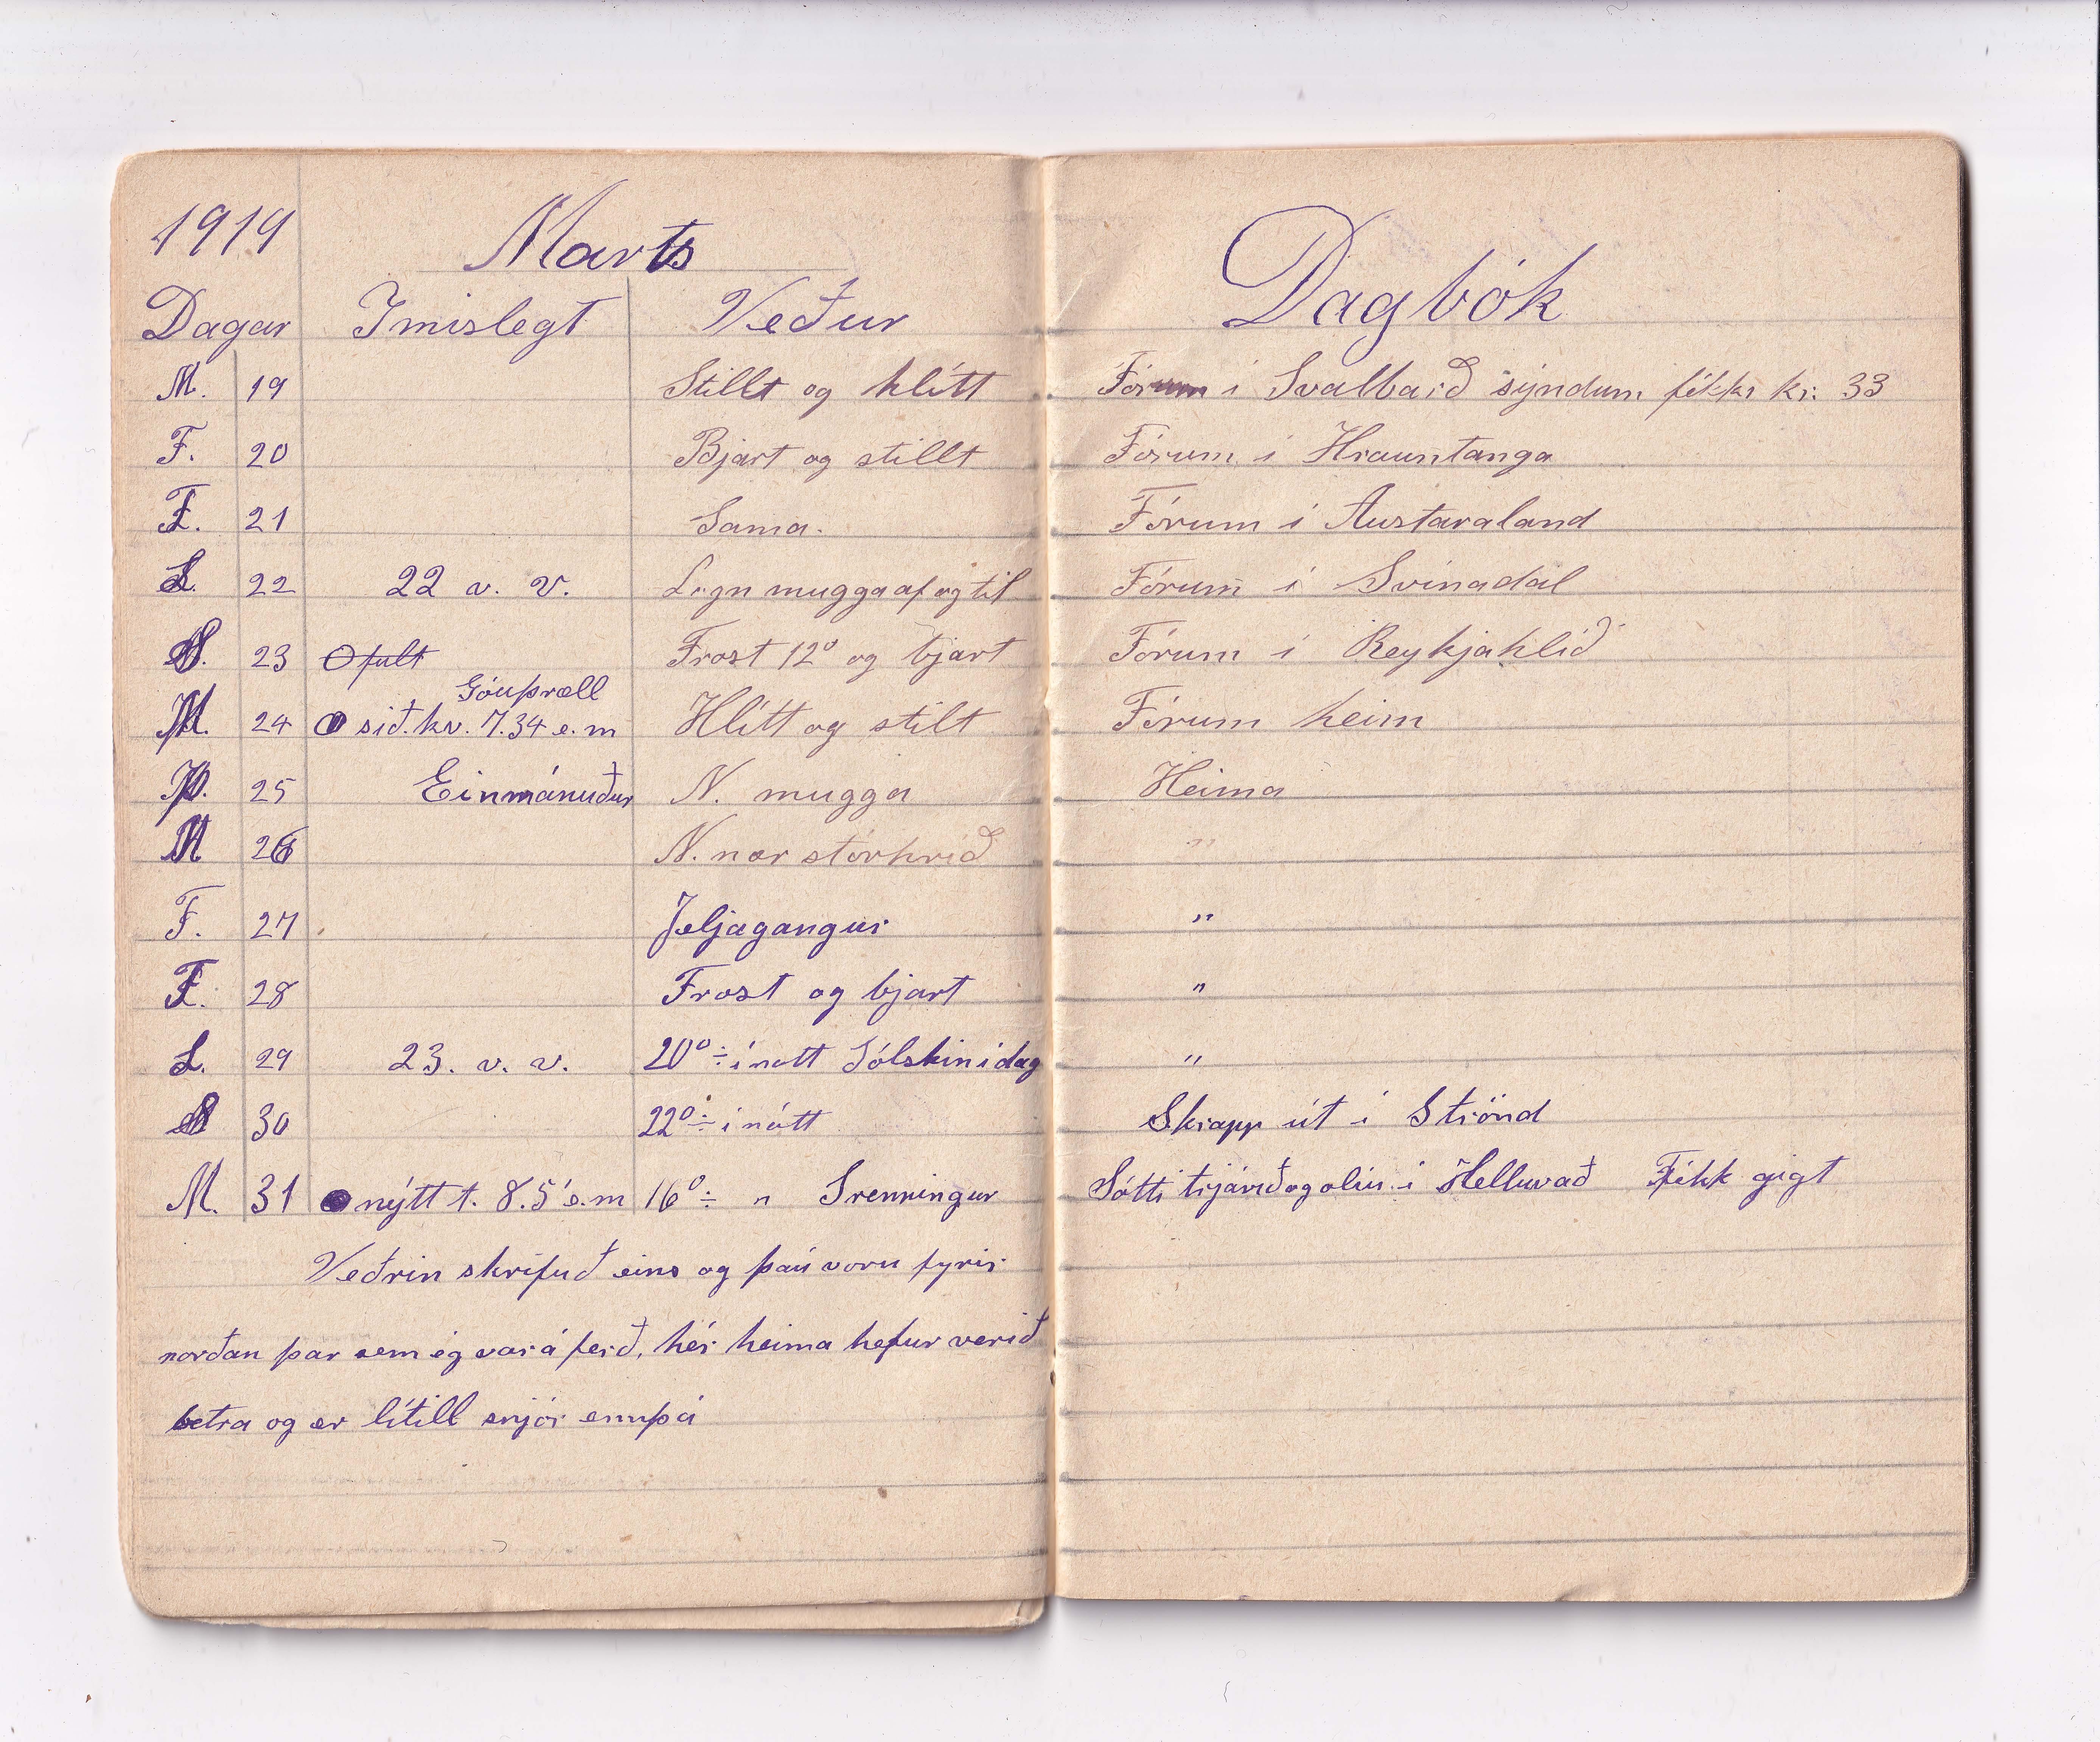 1919 Marts
Dagar Imislegt Veður
M. 19 Stillt og hlítt
F. 20 Bjart og stillt
F. 21 Sama.
L. 22 22 v. v. Logn mugga af og til
S. 23 O fult Frost 12° og bjart
Góuþræll
M. 24 sið. kv. 7.34 e. m Hlítt og stilt
Þ. 25 Einmánuður N. mugga
M 26 N. nær stórhríð
F. 27 Jeljagangur
F. 28 Frost og bjart
L. 29 23. v. v. 20° ÷ í nótt Sólskin í dag
S 30 22° ÷ í nótt
M. 31 nýtt t. 8.5 e. m 16° ÷ " Srenningur
Veðrin skrifuð eins og þau voru fyrir
norðan þar sem ég var á ferð, hér heima hefur verið
betra og er lítill snjór ennþá
Dagbók
Fórum í Svalbarð sýndum fékk kr: 33
Fórum í Hrauntanga
Fórum í Austaraland
Fórum í Svínadal
Fórum í Reykjahlíð
Fórum heim
Heima
"
"
"
"
Skrapp út í Strönd
Sótti trjávið og olíu í Helluvað Fékk gigt